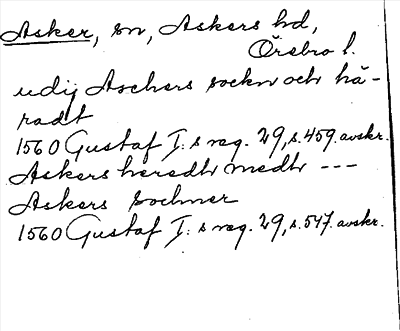 Asker, sn, Askers hd,
Örebro l.
udij Aschers sockn och hä-
radt
1560 Gustaf I:s reg. 29, s. 459. avskr.
Askers heredh medh ---
Askers sochner
1560 Gustaf I:s reg. 29, s. 547. avskr.